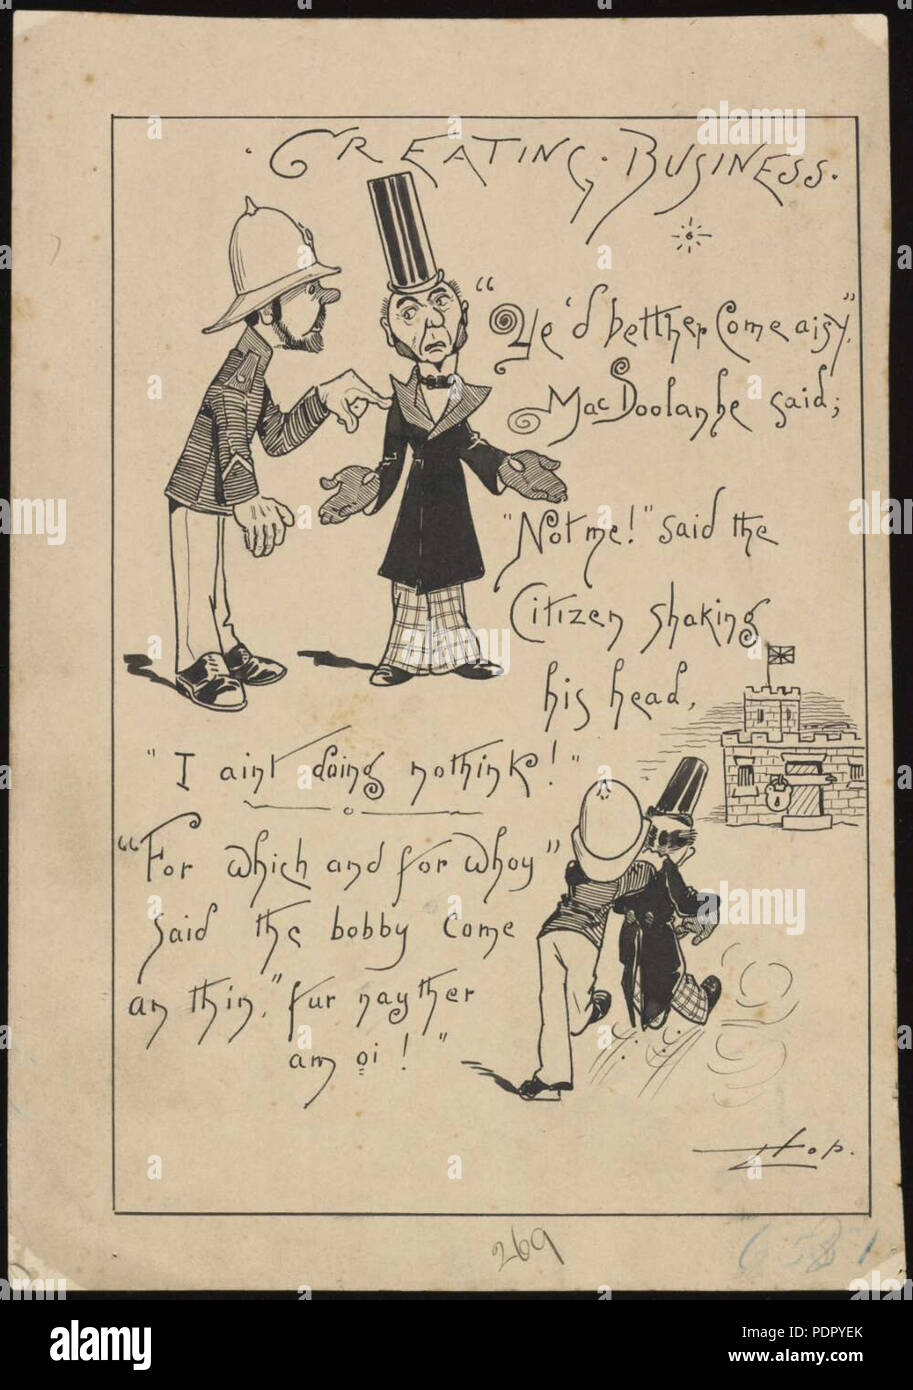 · CREATING · BUSINESS ·
6
"Ye'd betther Come aisy",
MacDoolanhe said;
"Not me!" said the
Citizen shaking
his head,
"I aint doing nothink!"
"For which and for whoy"
said the bobby come
an thin," fur nayther
am oi!"
Hop.
269
6581
alamy
Image ID: PDPYEK
www.alamy.com